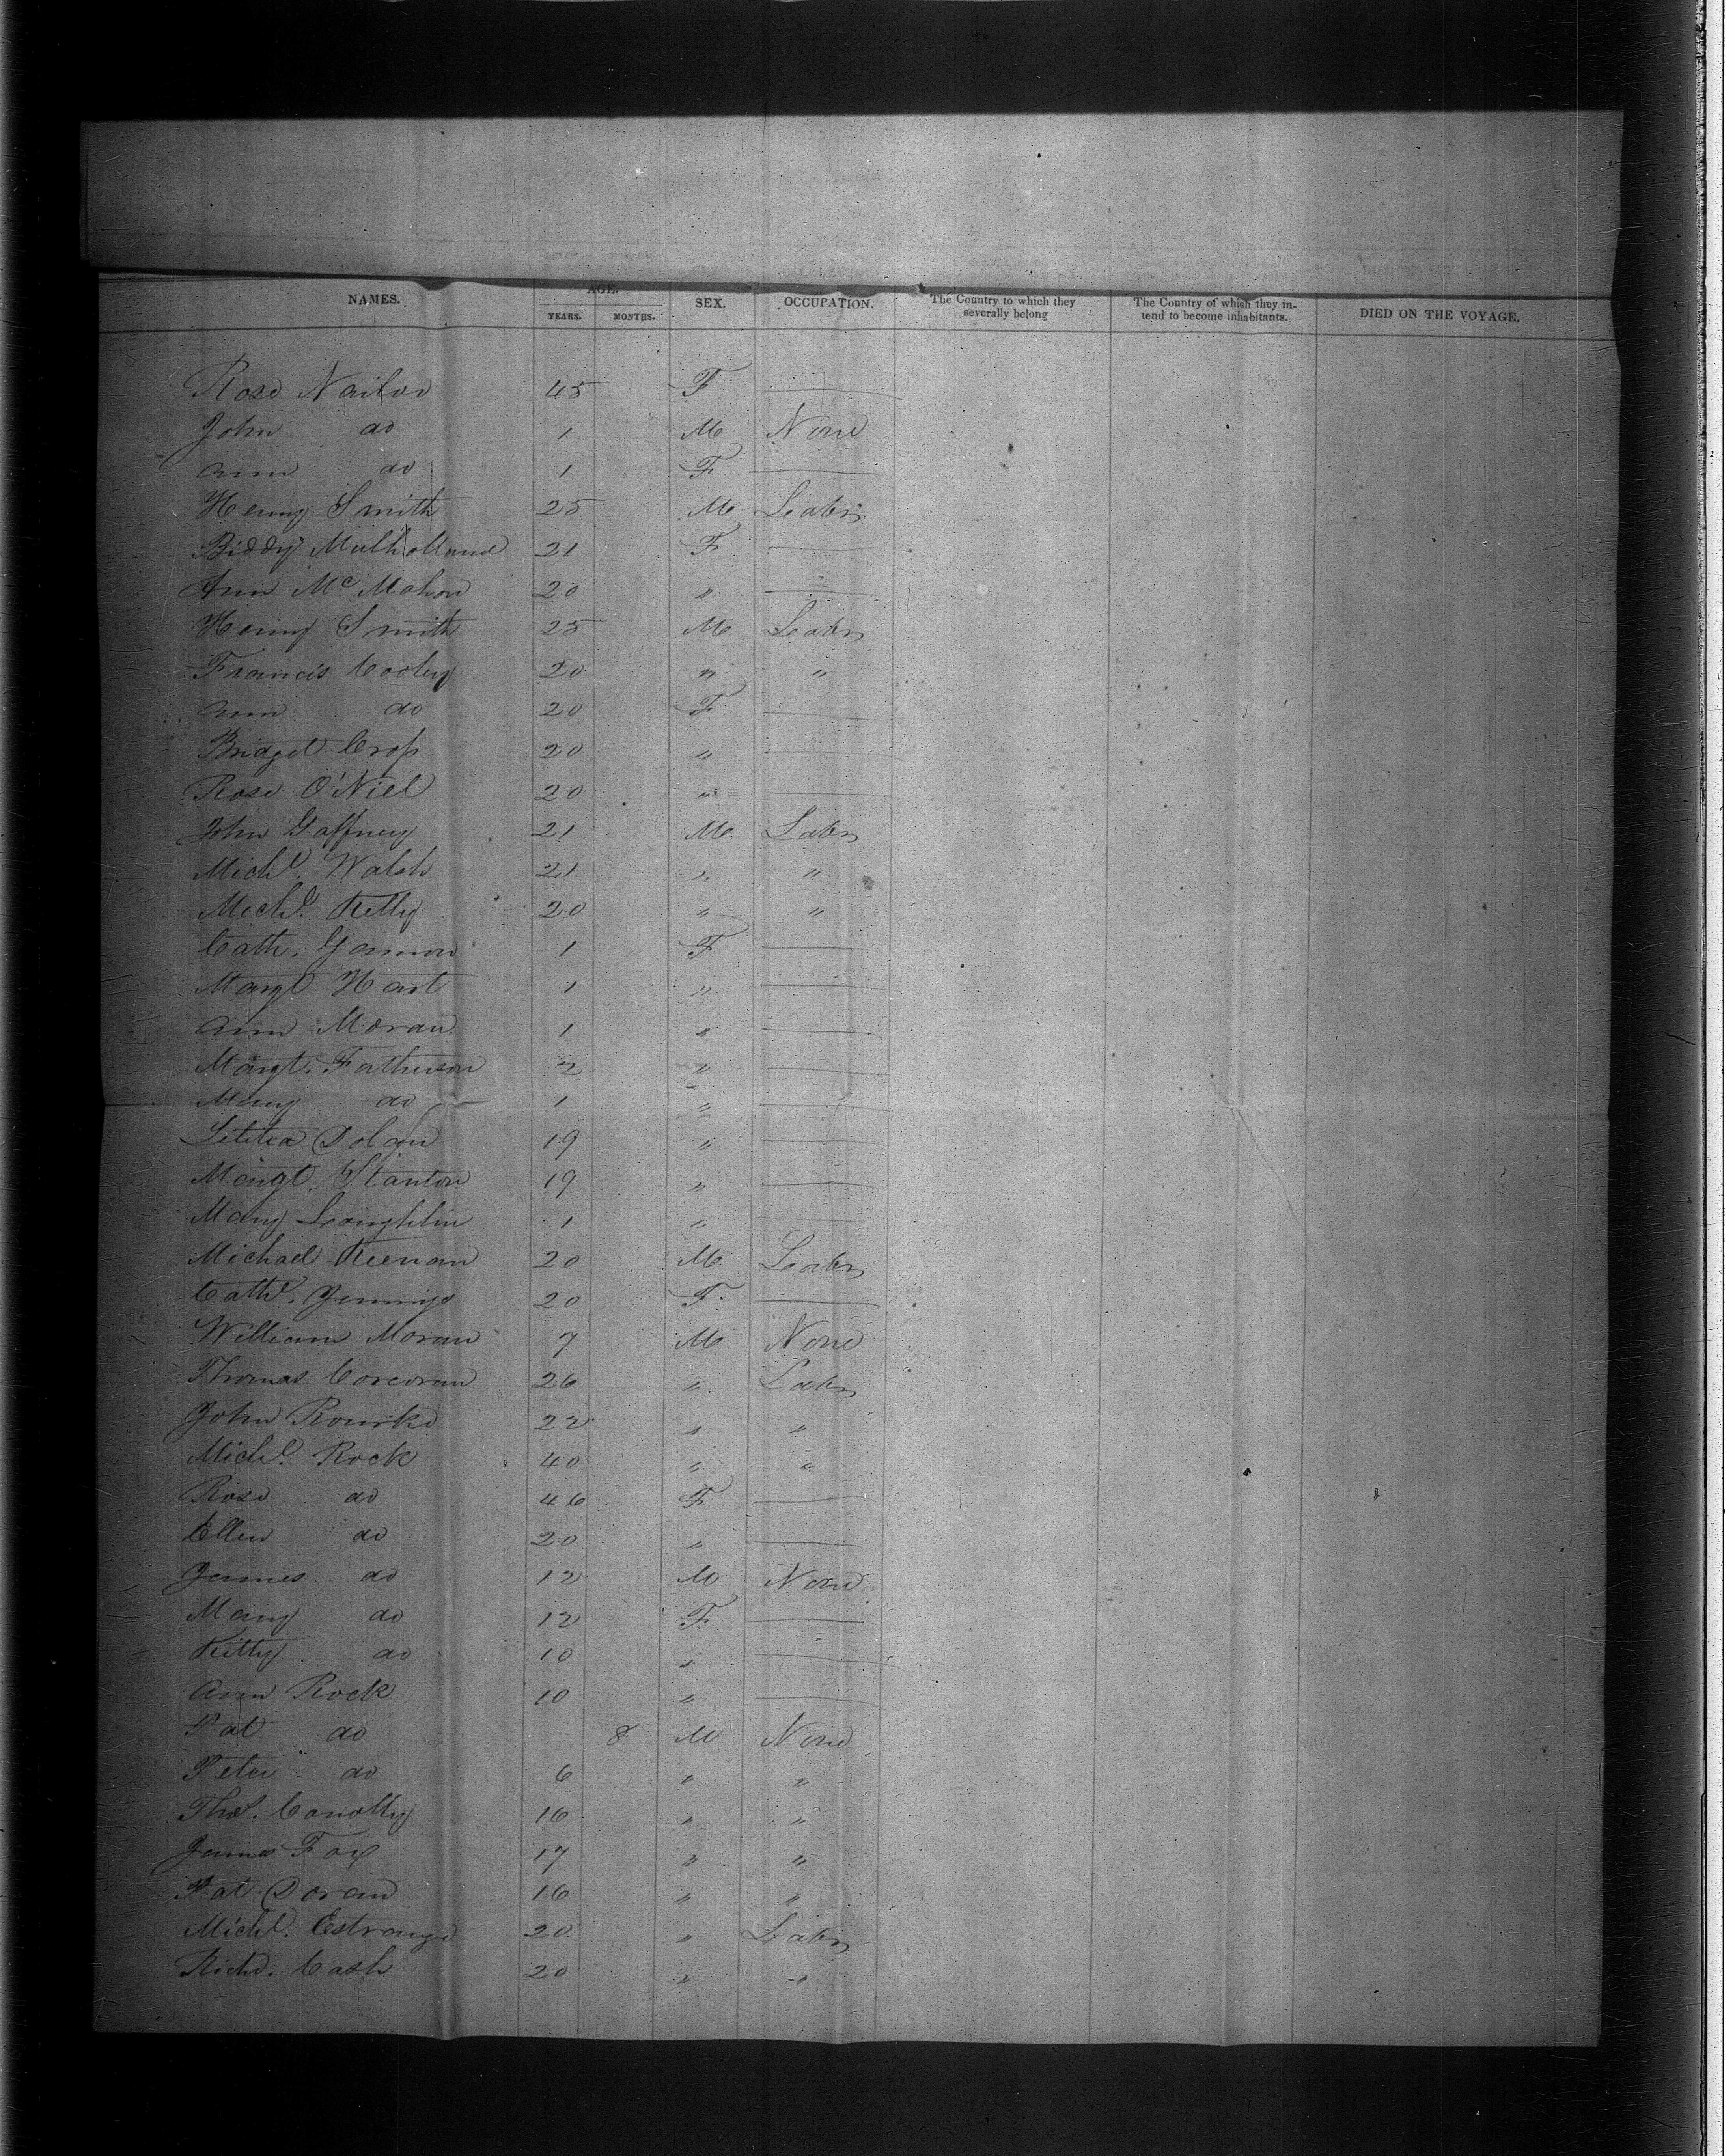 NAMES. AGE. SEX. OCCUPATION. The Country to which they severally belong The Country of which they intend to become inhabitants. DIED ON THE VOYAGE.
YEARS. MONTHS.
Rose Nailor 45 F —
John do 1 M None
Ann do 1 F —
Henry Smith 25 M Labr
Biddy Mulholland 21 F —
Ann Mc Mahon 20 " —
Henry Smith 25 M Labr
Francis Cooley 20 " "
Ann do 20 F —
Bridget Cross 20 " —
Rose O'Niel 20 " —
John Gaffney 21 M Labr
Michl. Walsh 21 " "
Michl. Kelly 20 " "
Cath. Gannon 1 F —
Margt Hart 1 " —
Ann Moran 1 " —
Margt. 2 " —
Mary do 1 " —
Letitia Dolan 19 " —
Margt. Stanton 19 " —
Mary Laughlin 1 " —
Michael Keenan 20 M Labr
Cathe. Jennings 20 F —
William Moran 7 M None
Thomas Corcoran 26 " Labr
John Rourke 22 " "
Michl. Rock 40 " "
Rose do 46 F —
Ellen do 20 " —
James do 12 M None
Mary do 12 F —
Kitty do 10 " —
Ann Rock 10 " —
Pat do 8 M None
Peter do 6 " "
Thos. Conolly 16 " "
James Fox 17 " "
Pat Doran 16 " "
Michl. Estrange 20 " Labr
Richd. Cash 20 " "